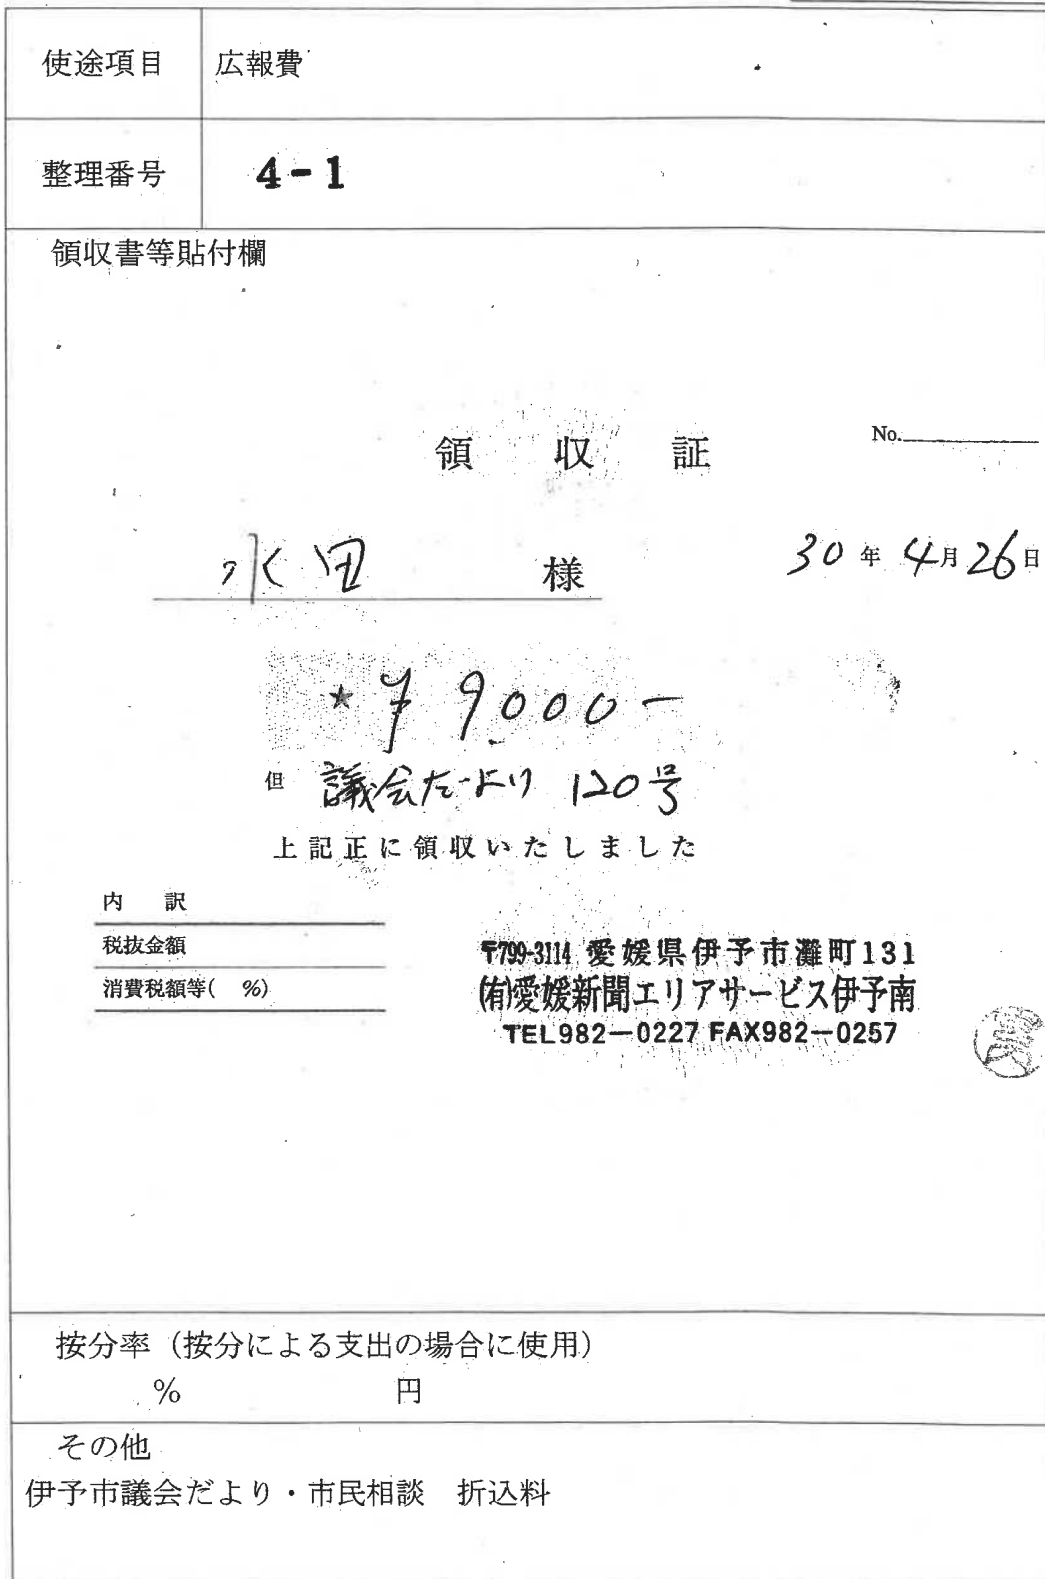 使途項目 広報費
整理番号 4-1
領収書等貼付欄
領収証 No.
水田 様 30年4月26日
★¥9000-
但 議会だより 120号
上記正に領収いたしました
内 訳
税抜金額
消費税額等( %)
〒799-3114 愛媛県伊予市灘町131
(有)愛媛新聞エリアサービス伊予南
TEL982-0227 FAX982-0257
按分率(按分による支出の場合に使用)
% 円
その他
伊予市議会だより・市民相談 折込料